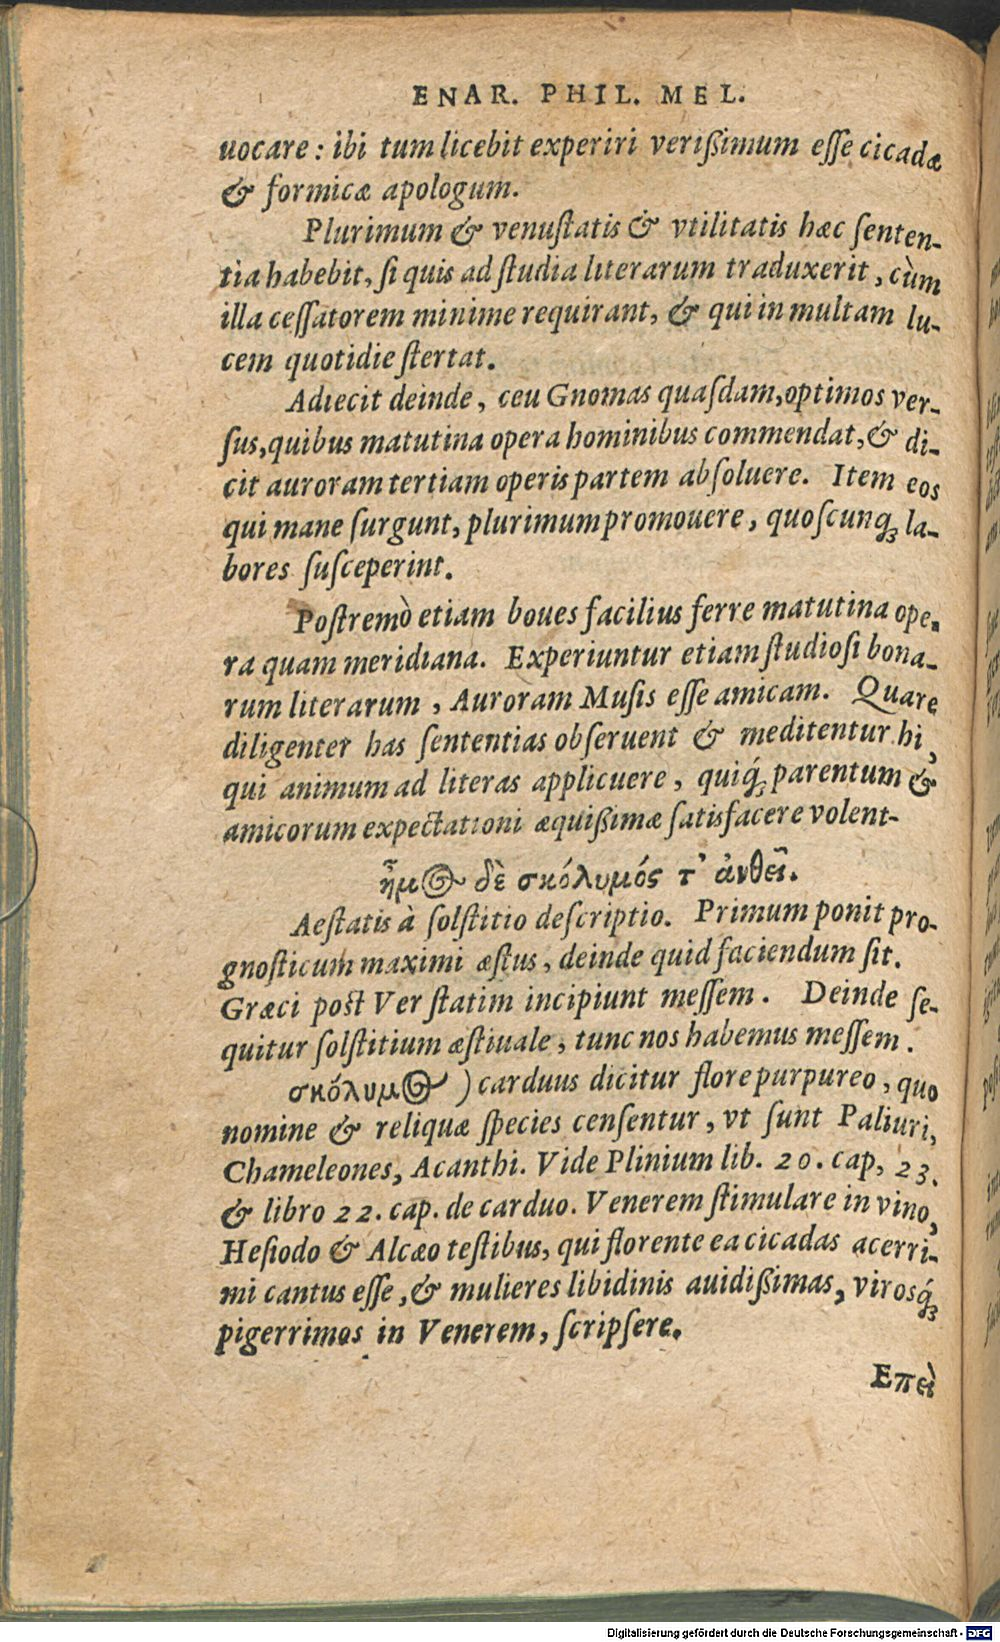 ENAR. PHIL. MEL.
uocare: ibi tum licebit experiri verißimum eſſe cicadæ
& formicæ apologum.
Plurimum & venuſtatis & vtilitatis hæc ſenten-
tia habebit, ſi quis ad ſtudia literarum traduxerit, cùm
illa ceſſatorem minime requirant, & qui in multam lu-
cem quotidie ſtertat.
Adiecit deinde, ceu Gnomas quaſdam, optimos ver-
ſus, quibus matutina opera hominibus commendat, & di-
cit auroram tertiam operis partem abſoluere. Item eos
qui mane ſurgunt, plurimum promouere, quoſcunq́ꝫ la-
bores ſuſceperint.
Poſtremò etiam boues facilius ferre matutina ope-
ra quam meridiana. Experiuntur etiam ſtudioſi bona-
rum literarum, Auroram Muſis eſſe amicam. Quare
diligenter has ſententias obſeruent & meditentur hi,
qui animum ad literas applicuere, quiq́ꝫ parentum &
amicorum expectationi æquißimæ ſatisfacere volent-
ἦμος δὲ σκόλυμός τ’ ἀνθεῖ.
Aeſtatis à ſolſtitio deſcriptio. Primum ponit pro-
gnoſticum maximi æſtus, deinde quid faciendum ſit.
Græci poſt Ver ſtatim incipiunt meſſem. Deinde ſe-
quitur ſolſtitium æſtiuale, tunc nos habemus meſſem.
σκόλυμος) carduus dicitur flore purpureo, quo
nomine & reliquæ ſpecies cenſentur, vt ſunt Paliuri,
Chameleones, Acanthi. Vide Plinium lib. 20. cap, 23.
& libro 22. cap. de carduo. Venerem ſtimulare in vino,
Heſiodo & Alcæo teſtibus, qui florente ea cicadas acerri-
mi cantus eſſe, & mulieres libidinis auidißimas, virosq́ꝫ
pigerrimos in Venerem, ſcripſere.
Επεὶ
Digitalisierung gefördert durch die Deutsche Forschungsgemeinschaft - DFG